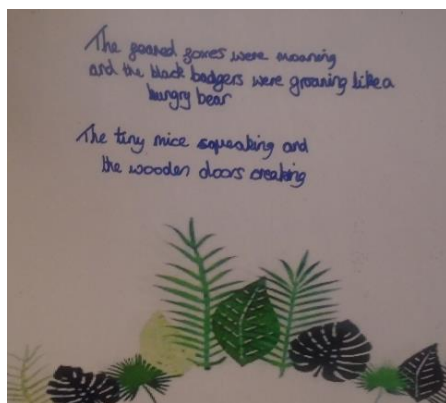 The feared foxes were moaning
and the black badgers were groaning like a
hungry bear
The tiny mice squeaking and
the wooden doors creaking